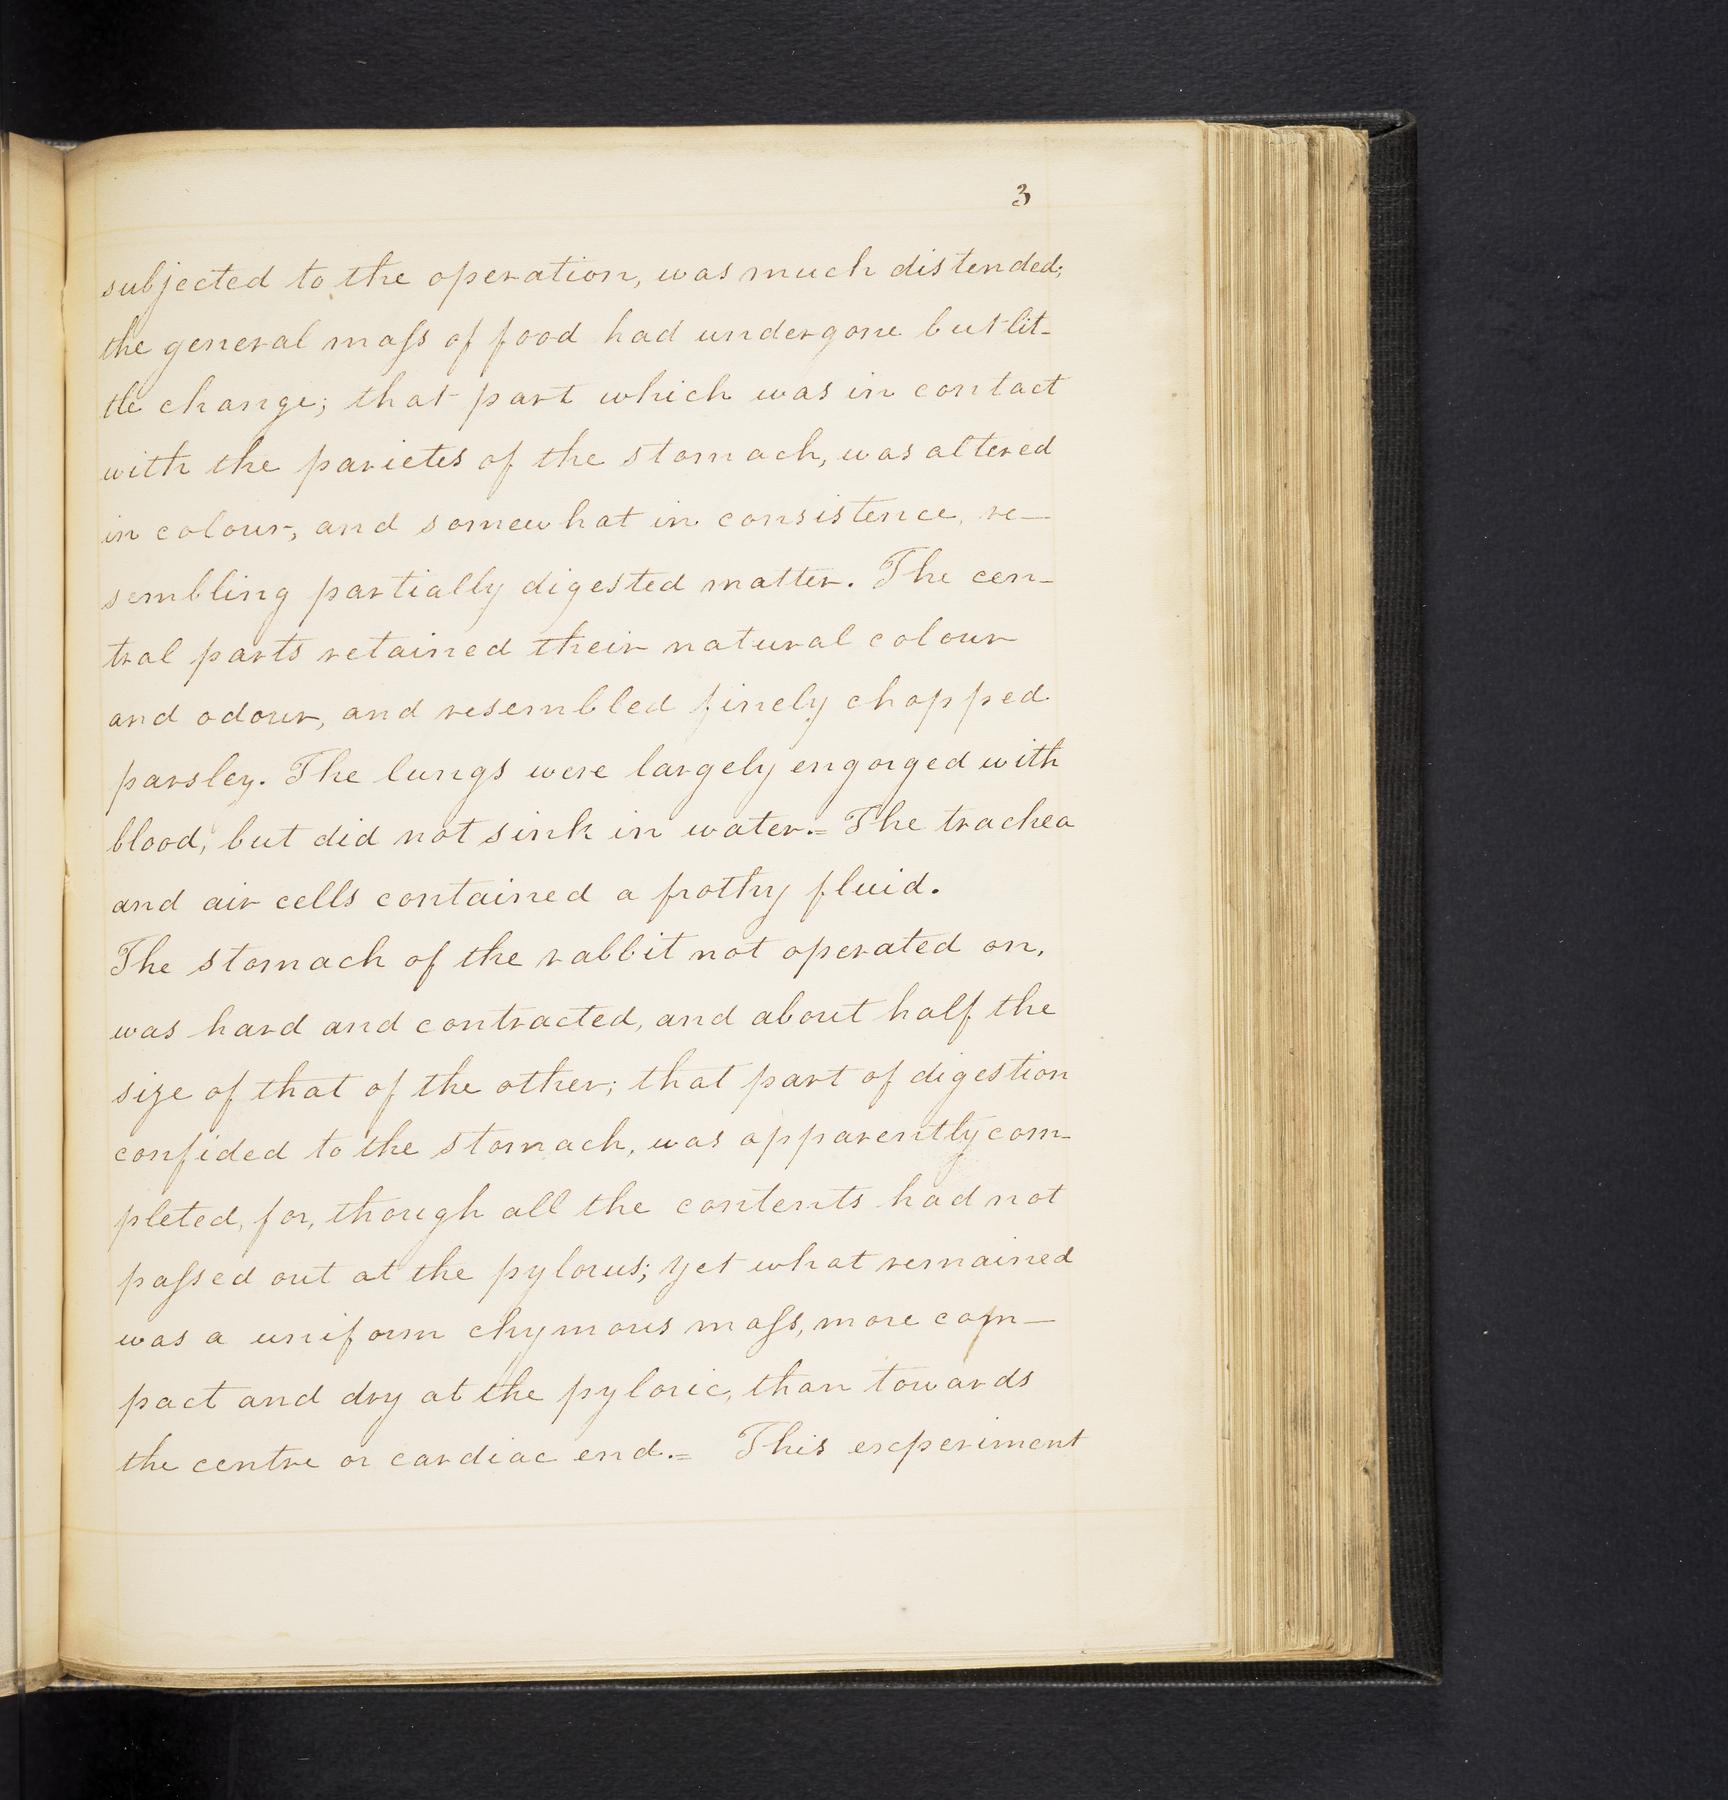 3
subjected to the operation, was much distended;
the general maſs of food had undergone but lit-
tle change; that part which was in contact
with the parietes of the stomach, was altered
in colour, and somewhat in consistence, re-
sembling partially digested matter. The cen-
tral parts retained their natural colour
and odour, and resembled finely chopped
parsley. The lungs were largely engorged with
blood, but did not sink in water.= The trachea
and air cells contained a frothy fluid.
The stomach of the rabbit not operated on,
was hard and contracted, and about half the
size of that of the other; that part of digestion
confided to the stomach, was apparently com-
pleted, for, though all the contents had not
paſsed out at the pylorus; yet what remained
was a uniform chymous maſs, more com-
pact and dry at the pyloric, than towards
the centre or cardiac end.= This experiment